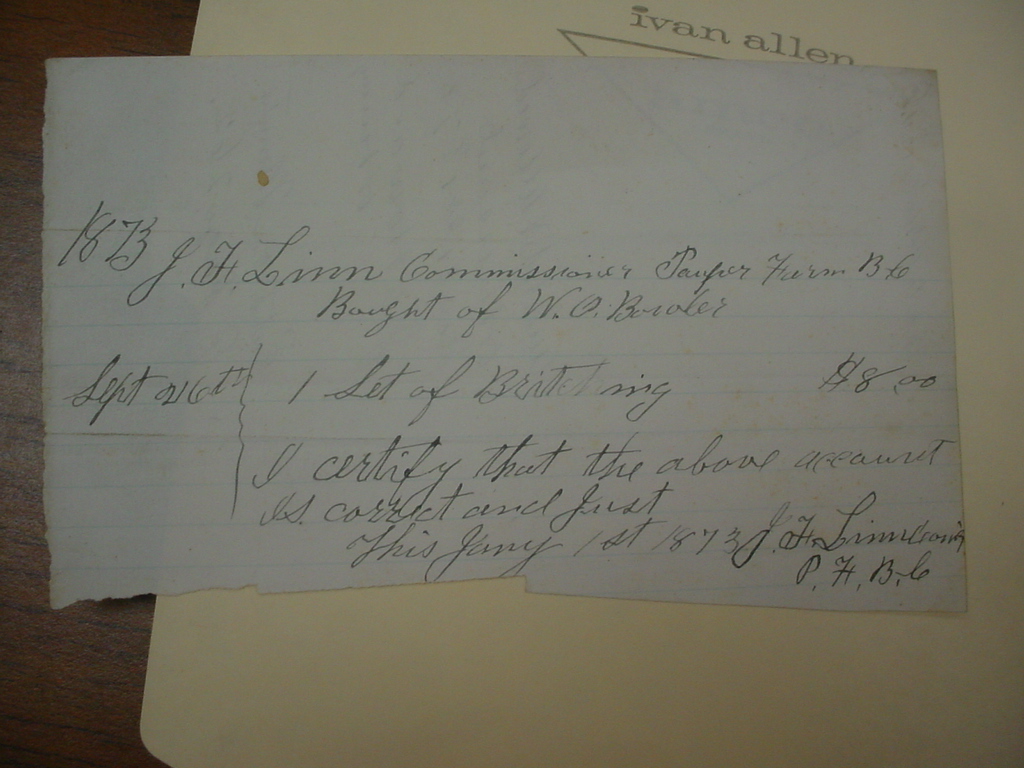 ivan allen
1873 J. F. Linn Commissioner Pauper Farm B.C
Bought of W. O. Bowler
Sept 26th 1 Set of Britching $8.00
I certify that the above account
Is. correct and Just
This Jany 1st 1873 J. F. Linn Comis
P. F. B. C